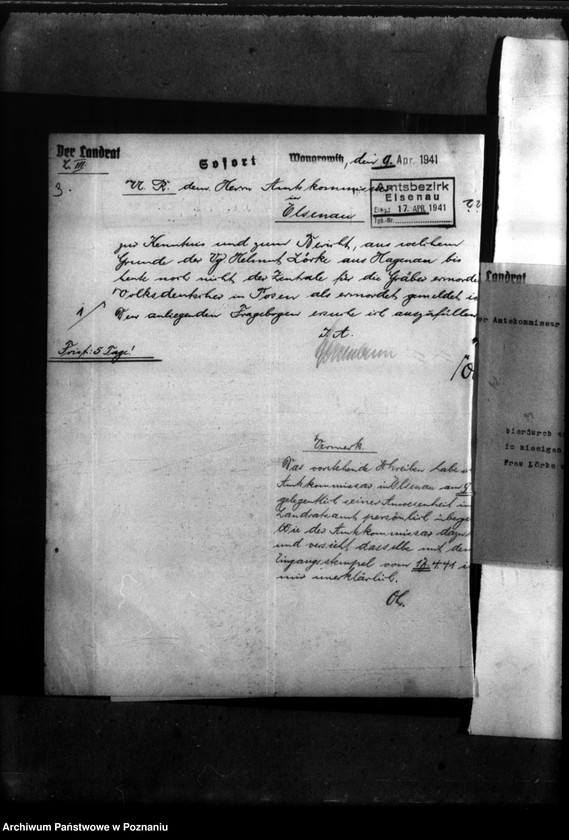 Der Landrat
L. III.
Sofort Wongrowitz, den 9. Apr. 1941
3. U. R. dem Herrn Amtskommissar
in
Elsenau
Amtsbezirk
Elsenau
Eing.: 17. APR. 1941
Tgb.-Nr.
zur Kenntnis und zum Bericht, aus welchem
Grunde der Vg. Helmut Lörke aus Hagenau bis
heute noch nicht der Zentrale für die Gräber ermordeter
Volksdeutscher in Posen als ermordet gemeldet
1/ Den anliegenden Fragebogen ersuche ich auszufüllen
J. A.
Frist: 5 Tage!
Vermerk
Das vorstehende Schreiben habe
Amtskommissar in Elsenau am 9.
gelegentlich seiner Anwesenheit im
Landratsamt persönlich
Wie der Amtskommissar dazu
und versieht dasselbe mit dem
Eingangsstempel vom 17.4.41
mir unerklärlich.
Landrat
Amtskommissar
hierdurch
in hiesigen
Frau Lörke
Archiwum Państwowe w Poznaniu